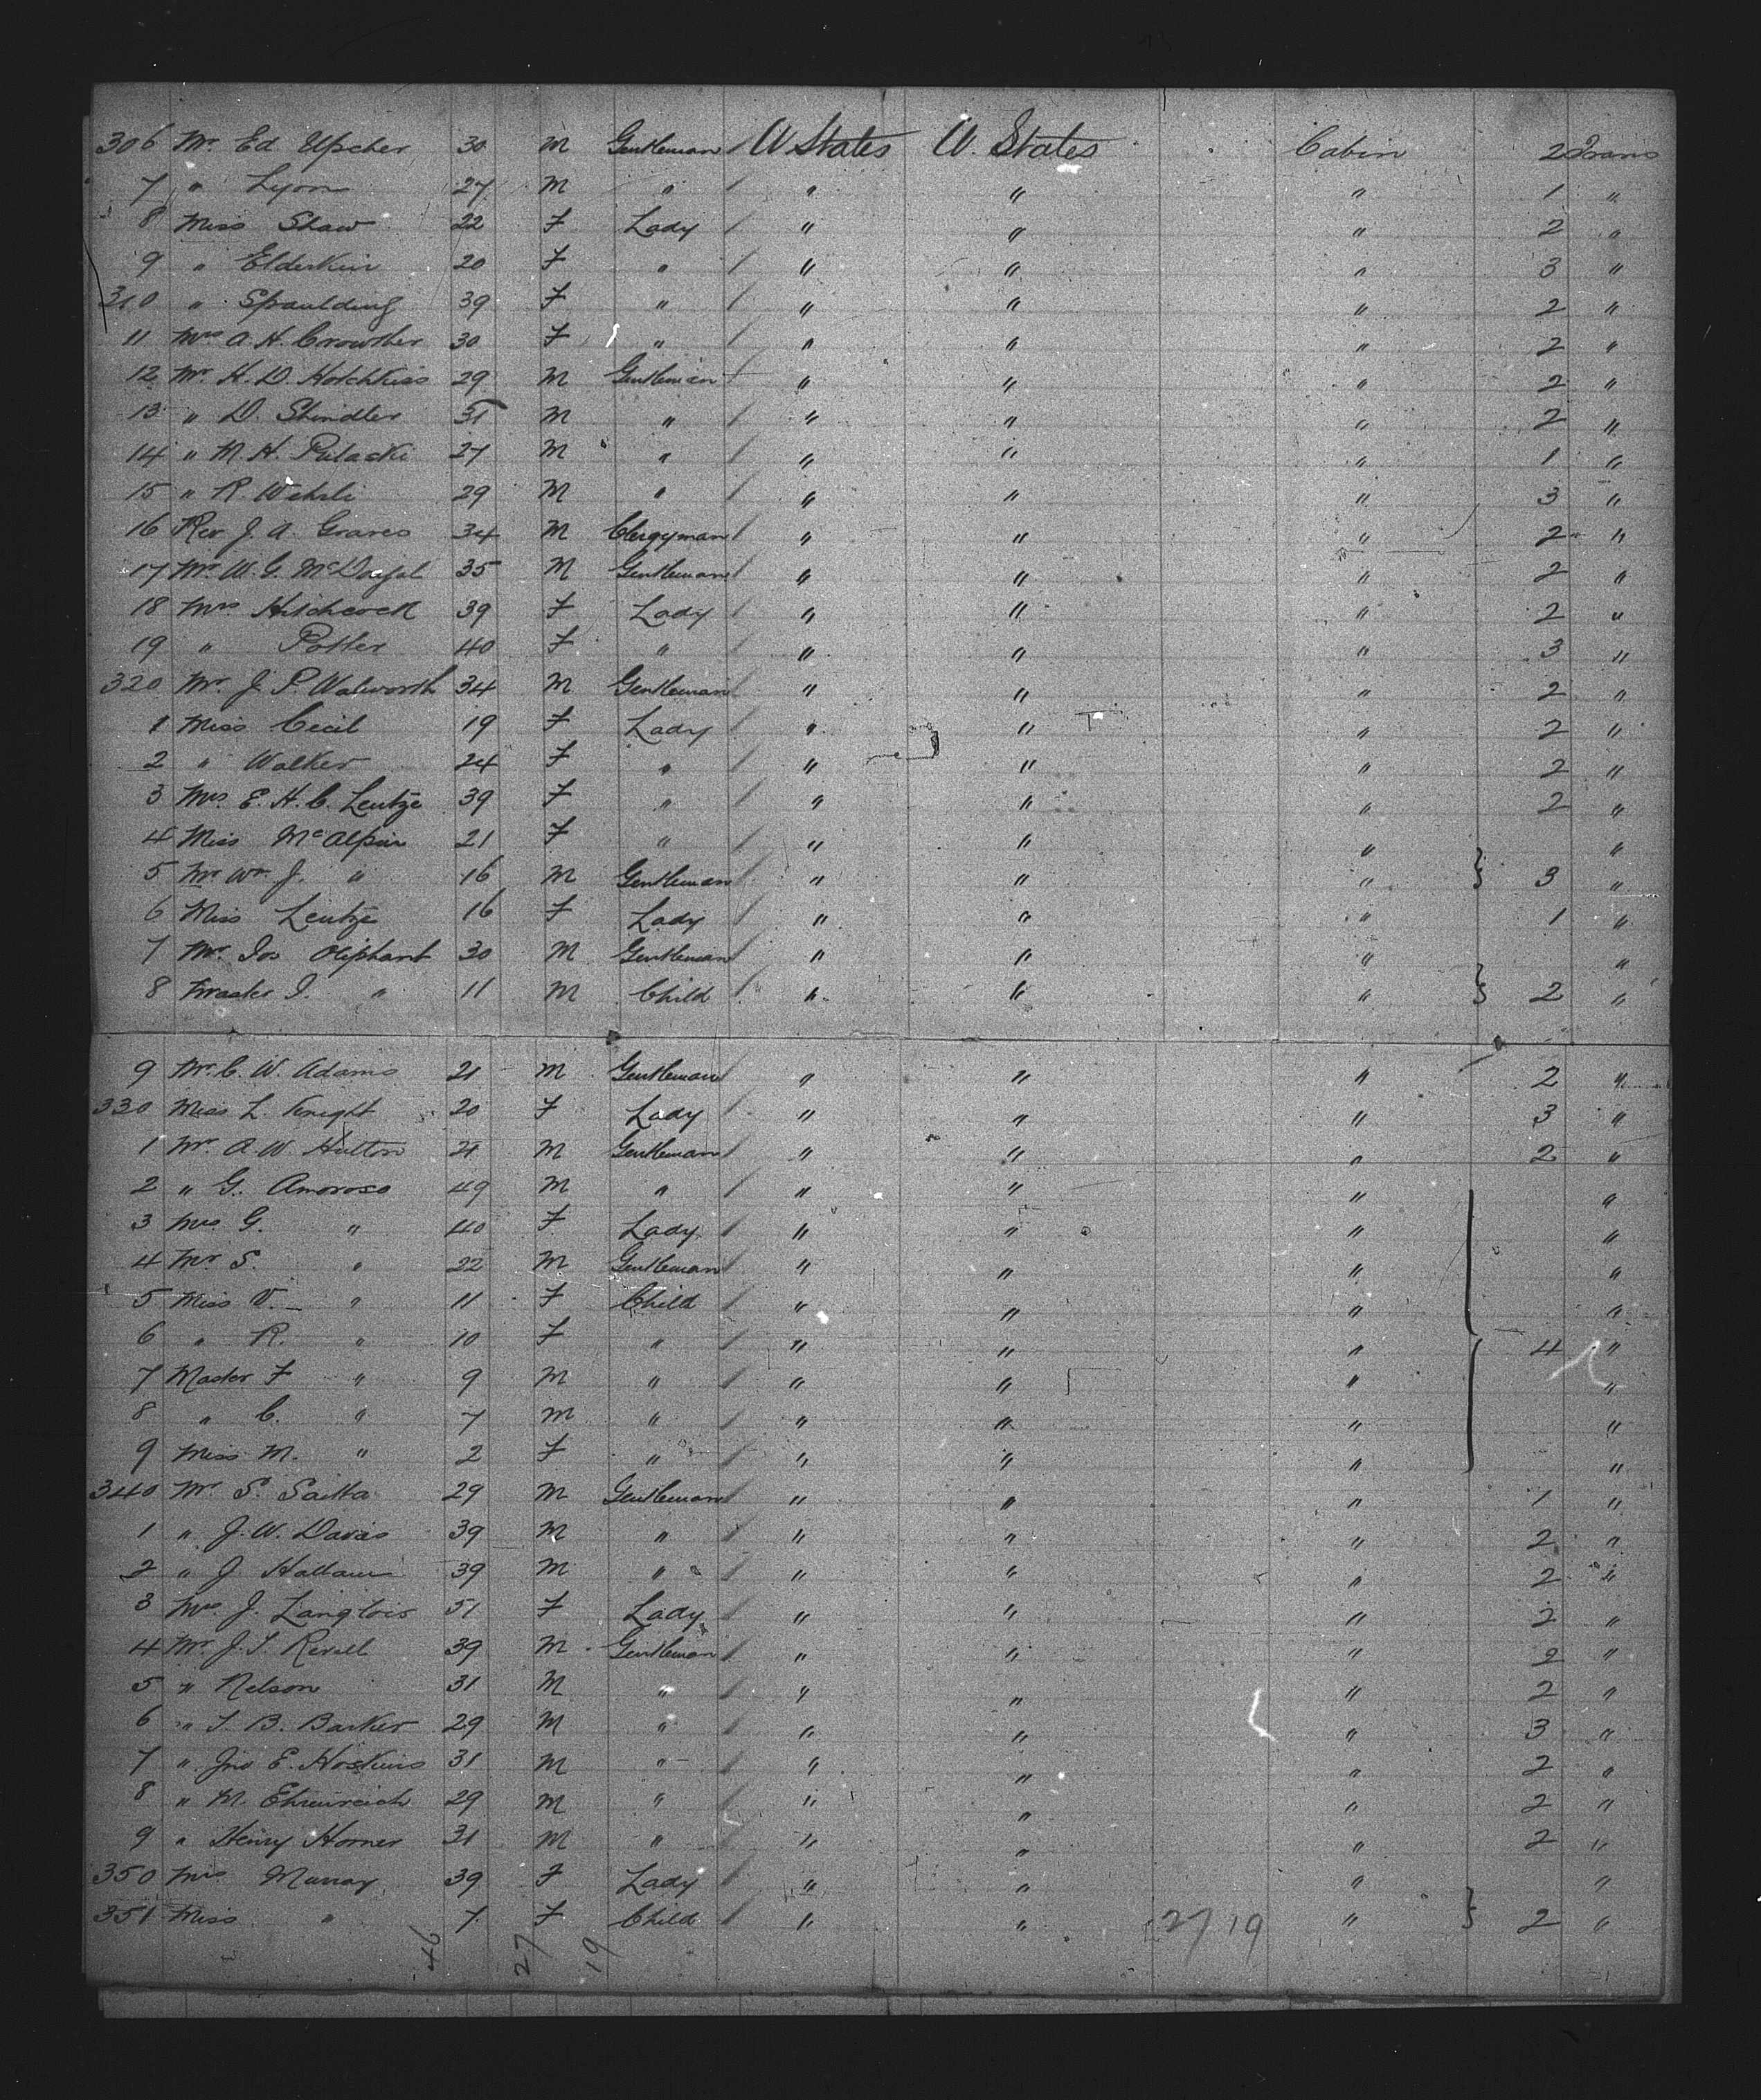 306 Mr. Ed Upcher 30 M Gentleman / U States U. States Cabin 2 Trans
7 " Lyon 27 M " / " " " 1 "
8 Miss Shaw 22 F Lady / " " " 2 "
9 " Elderkin 20 F " / " " " 3 "
310 " Spaulding 39 F " / " " " 2 "
11 Mrs A. H. Crowther 30 F " " " " 2 "
12 Mr. H. D. Hotchkiss 29 M Gentleman " " " 2 "
13 " D. Shindler 31 M " / " " " 2 "
14 " M. H. Pulaski 27 M " / " " " 1 "
15 " R. Wehrli 29 M " / " " " 3 "
16 Rev J. A. Graves 34 M Clergyman / " " " 2 "
17 Mr. W. G. 35 M Gentleman / " " " 2 "
18 Mrs Hitchcock 39 F Lady / " " " 2 "
19 " Potter 40 F " / " " " 3 "
320 Mr. J. P. Walworth 34 M Gentleman / " " " 2 "
1 Miss Cecil 19 F Lady / " " " 2 "
2 " Walker 24 F " / " " " 2 "
3 Mrs. E. H. C. Leutze 39 F " / " " " 2 "
4 Miss McAlpin 21 F " / " " " "
5 Mr. Wm J. " 16 M Gentleman / " " " } 3 "
6 Miss Leutze 16 F Lady / " " " 1 "
7 Mr. Jos Oliphant 30 M Gentleman / " " " "
8 Master J. " 11 M Child / " " " } 2 "
9 Mr. C. W. Adams 21 M Gentleman / " " " 2 "
330 Miss L. Knight 20 F Lady / " " " 3 "
1 Mr. A. W. Hutton 21 M Gentleman / " " " 2 "
2 " G. Amoroso 49 M " / " " " "
3 Mrs G. " 40 F Lady / " " " "
4 Mr. S. " 22 M Gentleman / " " " "
5 Miss V. " 11 F Child / " " " "
6 " R. " 10 F " / " " " } 4 "
7 Master F " 9 M " / " " " "
8 " C. " 7 M " / " " " "
9 Miss M. " 2 F " / " " " "
340 Mr. S. Saitta 29 M Gentleman / " " " 1 "
1 " J. W. Davis 39 M " / " " " 2 "
2 " J Hallam 39 M " / " " " 2 "
3 Mrs J. Langlois 51 F Lady / " " " 2 "
4 Mr. J. T. Revell 39 M Gentleman / " " " 2 "
5 " Nelson 31 M " / " " " 2 "
6 " T. B. Barker 29 M " / " " " 3 "
7 " Jno E. Hoskins 31 M " / " " " 2 "
8 " M. Ehrenreich 29 M " / " " " 2 "
9 " Henry Horner 31 M " / " " " 2 "
350 Mrs Murray 39 F Lady / " " " "
351 Miss " 7 F Child / " " 27 19 " } 2 "
46 27 19